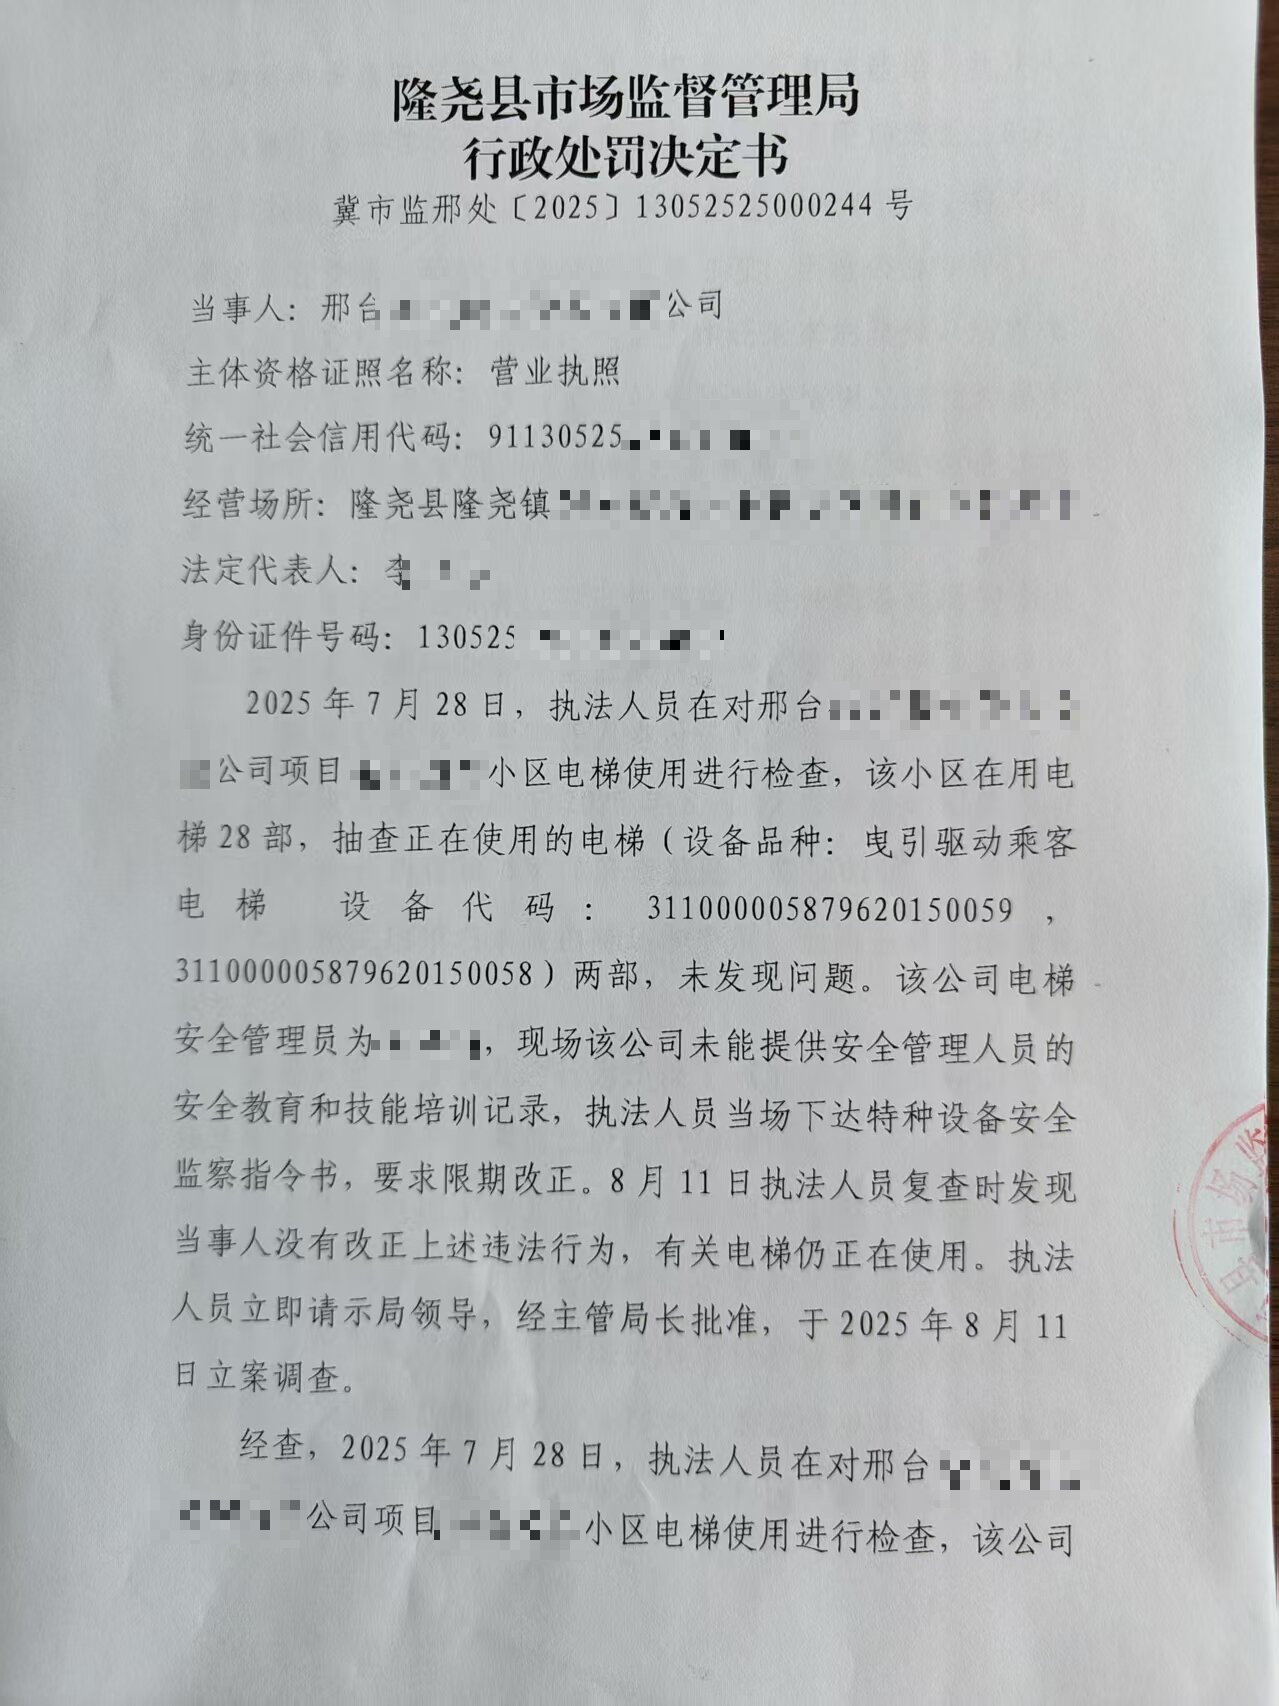 隆尧县市场监督管理局
行政处罚决定书
冀市监邢处〔2025〕13052525000244号
当事人：邢台 公司
主体资格证照名称：营业执照
统一社会信用代码：91130525
经营场所：隆尧县隆尧镇
法定代表人：李
身份证件号码：130525
2025年7月28日，执法人员在对邢台
公司项目 小区电梯使用进行检查，该小区在用电
梯28部，抽查正在使用的电梯（设备品种：曳引驱动乘客
电梯 设备代码：311000005879620150059，
311000005879620150058）两部，未发现问题。该公司电梯
安全管理员为 ，现场该公司未能提供安全管理人员的
安全教育和技能培训记录，执法人员当场下达特种设备安全
监察指令书，要求限期改正。8月11日执法人员复查时发现
当事人没有改正上述违法行为，有关电梯仍正在使用。执法
人员立即请示局领导，经主管局长批准，于2025年8月11
日立案调查。
经查，2025年7月28日，执法人员在对邢台
公司项目 小区电梯使用进行检查，该公司
县市场监